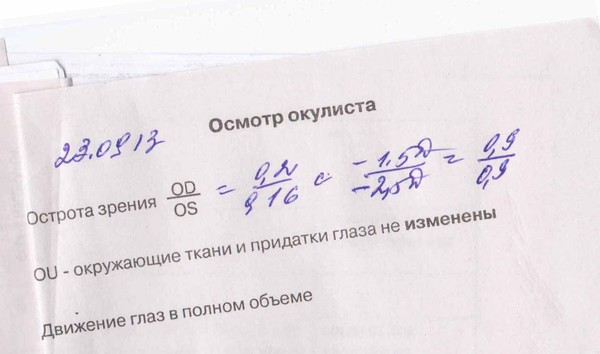 Осмотр окулиста
23.09.13
Острота зрения OD/OS = 0,2/0,16 с -1.5Д/-2,5Д = 0,9/0,9
OU - окружающие ткани и придатки глаза не изменены
Движение глаз в полном объеме